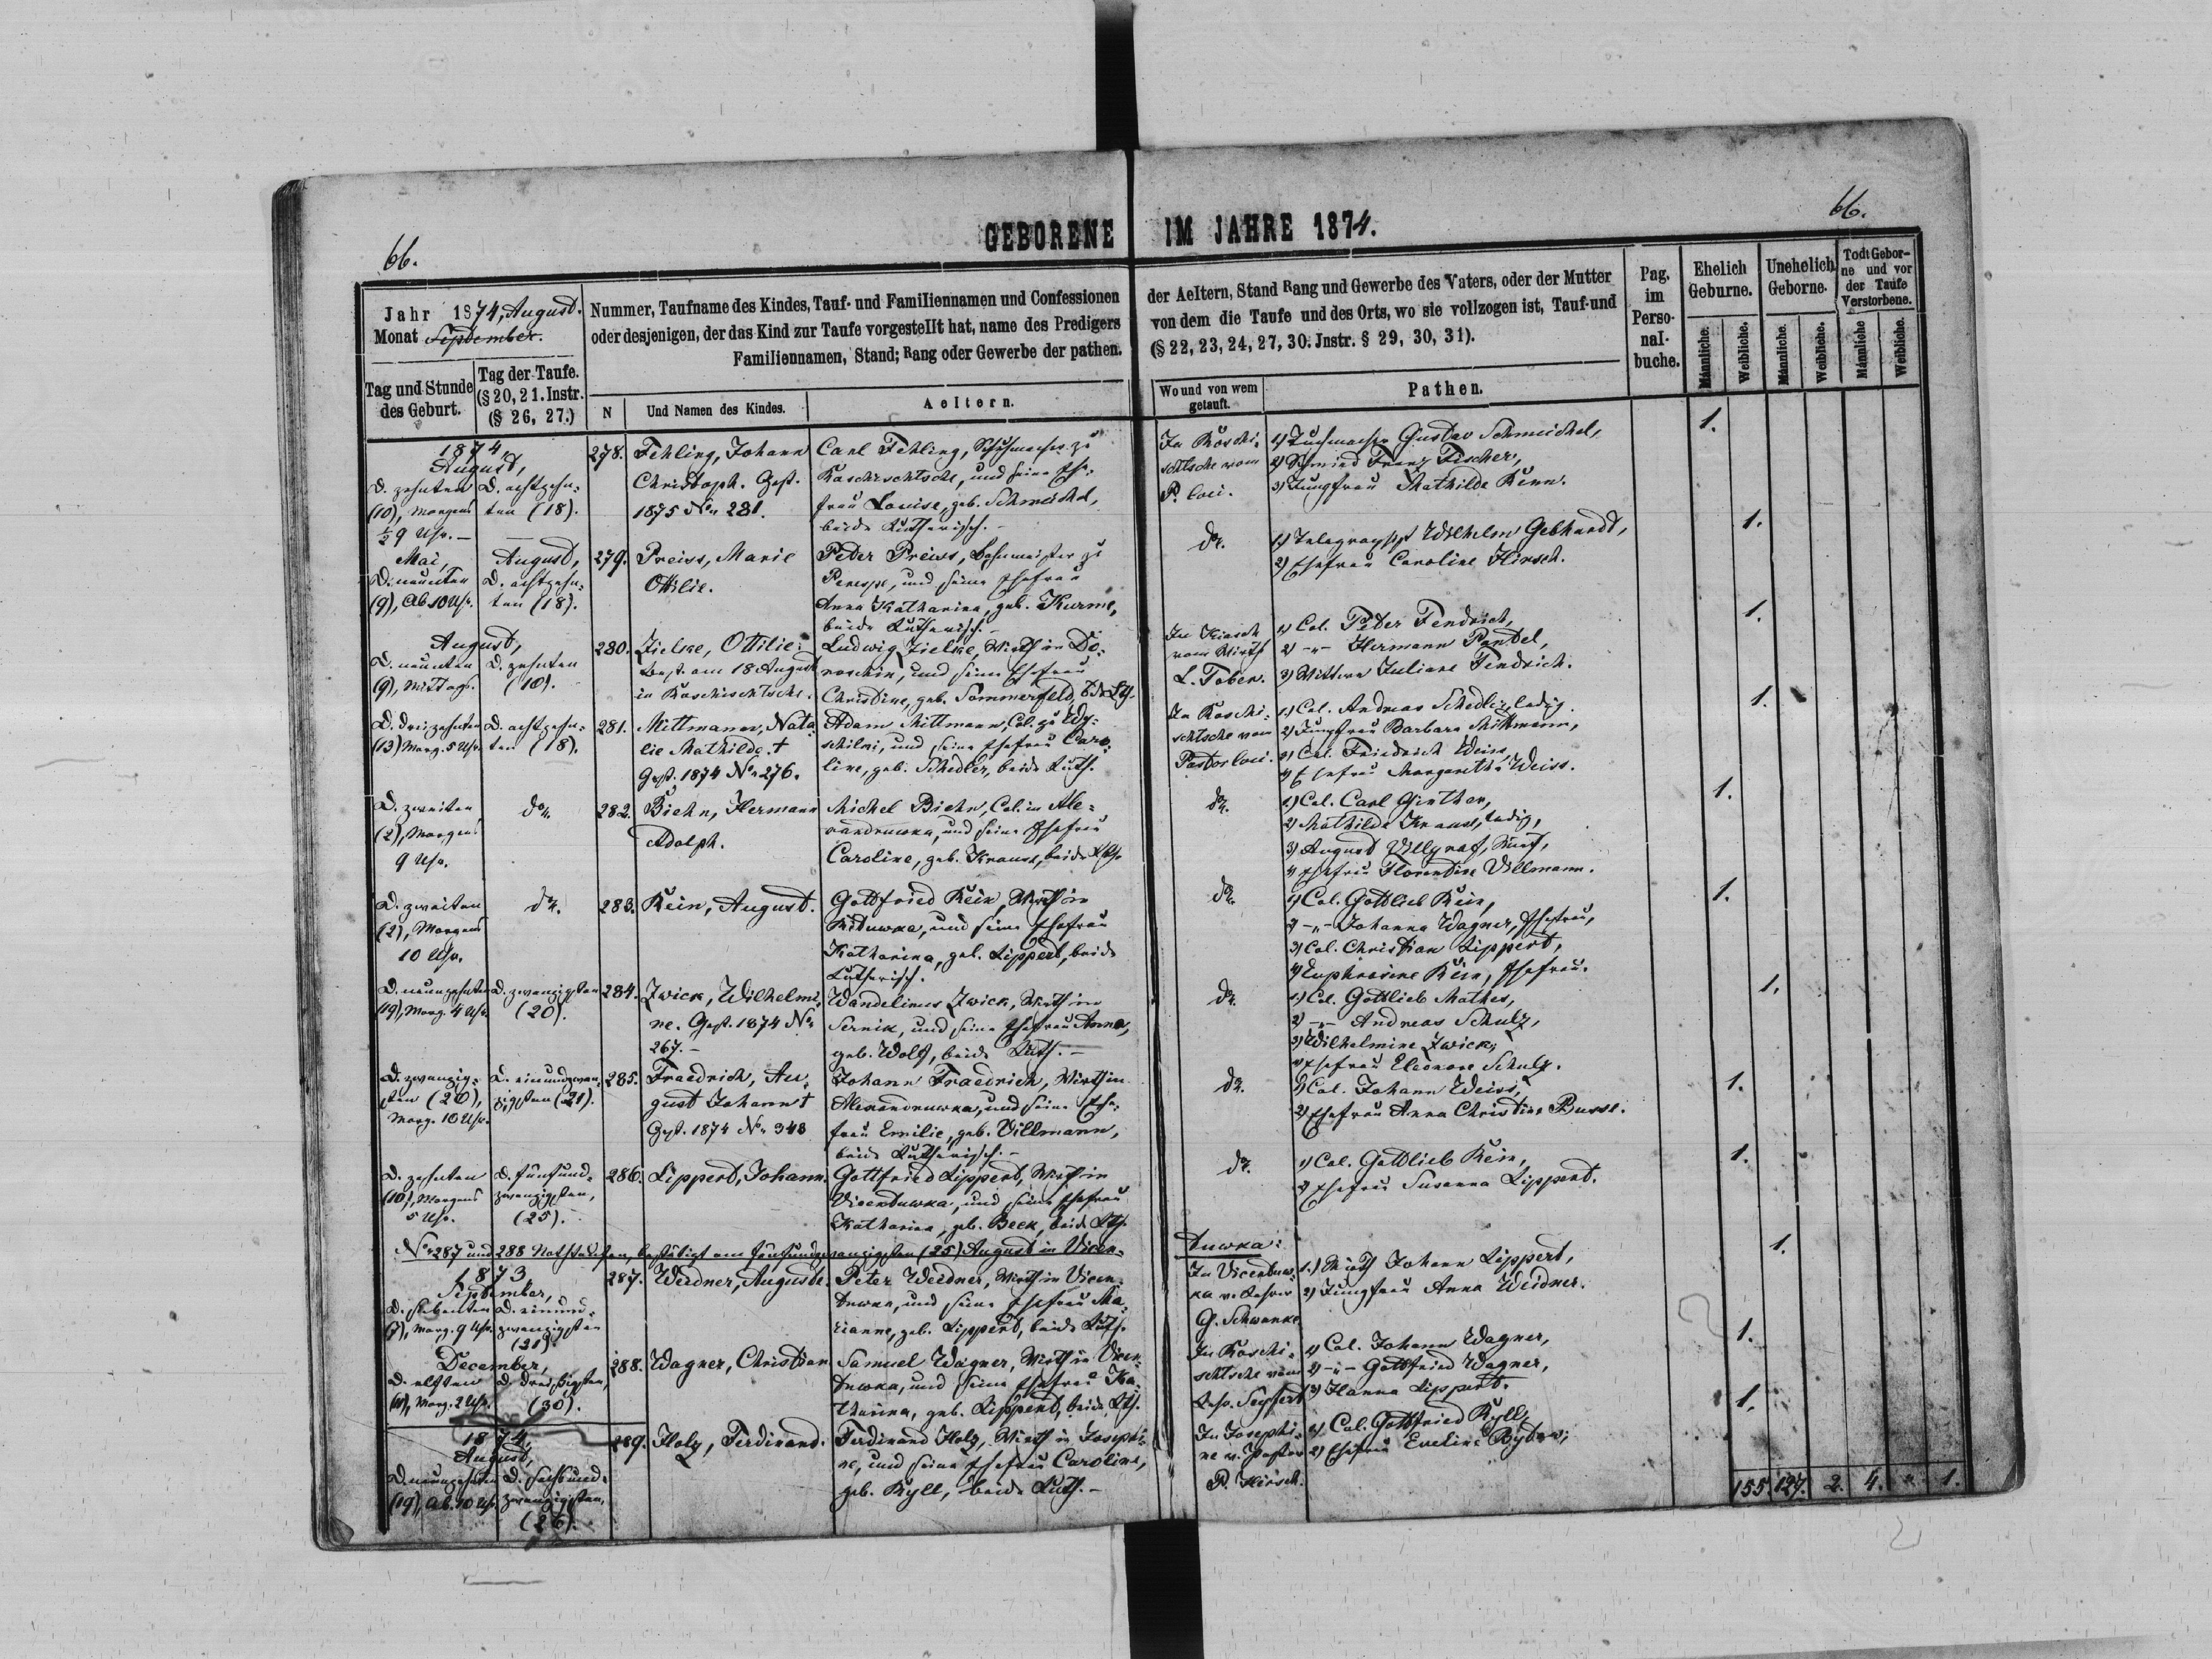 66.
GEBORENE IM JAHRE 1874.
66.
Jahr 1874, August.
Monat September.
Tag und Stunde des Geburt.
Tag der Taufe. (§ 20, 21. Instr. (§ 26, 27.)
Nummer, Taufname des Kindes, Tauf- und Familiennamen und Confessionen
oder desjenigen, der das Kind zur Taufe vorgestellt hat, name des Predigers
Familiennamen, Stand; Rang oder Gewerbe der pathen.
N
Und Namen des Kindes.
Aeltern.
der Aeltern, Stand Rang und Gewerbe des Vaters, oder der Mutter
von dem die Taufe und des Orts, wo sie vollzogen ist, Tauf-und
(§ 22, 23, 24, 27, 30. Jnstr. § 29, 30, 31).
Wo und von wem getauft.
Pathen.
Pag. im Perso- nal- buche.
Ehelich Geburne.
Unehelich Geborne.
Todt Gebor- ne und vor der Taufe Verstorbene.
Männliche.
Weibliche.
Männliche.
Weibliche.
Männliche
Weibliche.
1874,
August,
D. zehnten
(10), Morgens
½9 Uhr.
D. achtzehn-
ten (18).
278.
Fehling, Johann
Christoph. Gest.
1875 No 281.
Carl Fehling, Schuhmacher zu
Koschischtsche, und seine Ehe-
frau Louise, geb. Schmeichel,
beide Lutherisch.
In Koschi-
schtsche vom
P. loci.
1) Tuchmacher Gustav Schmeichel,
2) Schmied Franz Fischer,
3) Jungfrau Mathilde Kenn.
1.
Mai,
D. neunten
(9), Ab. 10 Uhr.
August,
D. achtzehn-
ten (18).
279.
Preiss, Marie
Ottilie.
Peter Preiss, Bahnmeister zu
Perespe, und seine Ehefrau
Anna Katharina, geb. Kurme,
beide Lutherisch.
do.
1) Telegraphist Wilhelm Gebhardt,
2) Ehefrau Caroline Hirsch.
1.
August,
D. neunten
(9), Mittags.
D. zehnten
(10).
280.
Zielke, Ottilie:
best. am 18 August
in Koschischtsche.
Ludwig Zielke, Wirth in Do-
roschin, und seine Ehefrau
Christine, geb. Sommerfeld, beide Lth.
vom Wirth
L. Tober.
1) Col. Peter Fendrich,
2) -"- Hermann Pantel,
3) Wittwe Juliane Fendrich.
1.
D. dreizehnten
(13) Morg. 5 Uhr.
D. achtzehn-
ten (18).
281.
Mittmann, Nata-
lie Mathilde. †
Gest. 1874 No 276.
Adam Mittmann, Col. zu Wy-
schilni, und seine Ehefrau Caro-
line, geb. Schedler, beide Luth.
In Koschi-
schtsche vom
Pastor loci.
1) Col. Andreas Schedler, ledig.
2) Jungfrau Barbara Mittmann,
3) Col. Friedrich Weiss,
4) Ehefrau Margaretha Weiss.
1.
D. zweiten
(2), Morgens
9 Uhr.
do.
282.
Biehn, Hermann
Adolph.
Michel Biehn, Col. in Ale-
xandruwka, und seine Ehefrau
Caroline, geb. Krause, beide Lth.
do.
1) Col. Carl Ginther,
2) Mathilde Krause, ledig,
3) August Wellgraf,
4) Ehefrau Florentine Villmann.
1.
D. zweiten
(2), Morgens
10 Uhr.
do.
283.
Kein, August.
Gottfried Kein, Wirth in
und seine Ehefrau
Katharina, geb. Lippert, beide
Lutherisch.
do.
1) Col. Gottlieb Kein,
2) -"- Johanna Wagner, Ehefrau,
3) Col. Christian Lippert,
4) Euphrosine Kein, Ehefrau.
1.
D. neunzehnten
(19), Morg. 4 Uhr.
D. zwanzigsten
(20).
284.
Zwick, Wilhelmi-
ne. Gest. 1874 No
267.
Wandelinus Zwick, Wirth in
Sernik, und seine Ehefrau Anna,
geb. Wolf, beide Luth.
do.
1) Col. Gottlieb Mathes,
2) -"- Andreas Schulz,
3) Wilhelmine Zwick,
4) Ehefrau Eleonore Schulz.
1.
D. zwanzig-
sten (20),
Morg. 10 Uhr.
D. einundzwan-
zigsten (21).
285.
Fraedrich, Au-
gust Johann †
Gest. 1874 No 343
Johann Fraedrich, Wirth in
Alexandruwka, und seine Ehe-
frau Emilie, geb. Villmann,
beide Lutherisch.
do.
1) Col. Johann Weiss,
2) Ehefrau Anna Christine Busse.
1.
D. zehnten
(10), Morgens
5 Uhr.
D. fünfund-
zwanzigsten,
(25).
286.
Lippert, Johann.
Gottfried Lippert, Wirth in
Vicentuwka, und seine Ehefrau
Katharina, geb. Beck, beide Lth.
do.
1) Col. Gottlieb Kein,
2) Ehefrau Susanna Lippert.
1.
No 287 und 288 Nothtaufen, bestätigt am fünfundzwanzigsten (25) August in Vicen-
tuwka:
1873,
September,
D. siebenten
(7), Morg. 9 Uhr.
D. einund-
zwanzigsten
(21).
287.
Weidner, Auguste.
Peter Weidner, Wirth in Vicen-
tuwka, und seine Ehefrau Ma-
rianne, geb. Lippert, beide Luth.
In Vicentuw-
ka v. Lehrer
G. Schwanke
1.) Wirth Johann Lippert,
2) Jungfrau Anna Weidner.
1.
December,
D. elften
(11), Morg. 2 Uhr.
D. dreißigsten,
(30).
288.
Wagner, Christian
Samuel Wagner, Wirth in Vicen-
tuwka, und seine Ehefrau Ka-
tharina, geb. Lippert, beide Lth.
In Koschi-
schtsche vom
Seyfert
1) Col. Johann Wagner,
2) -"- Gottfried Wagner,
3) Hanna Lippert.
1.
1874,
August,
D. neunzehnten
(19), Ab. 10 Uhr.
D. sechsund-
zwanzigsten,
(26).
289.
Holz, Ferdinand.
Ferdinand Holz, Wirth in Josephi-
ne, und seine Ehefrau Caroline,
geb. Kyll, beide Luth.
In Josephi-
ne v. Pastor
P. Hirsch.
1) Col. Gottfried Kyll,
2) Ehefrau Eveline
1.
155. 127. 2. 4. " 1.